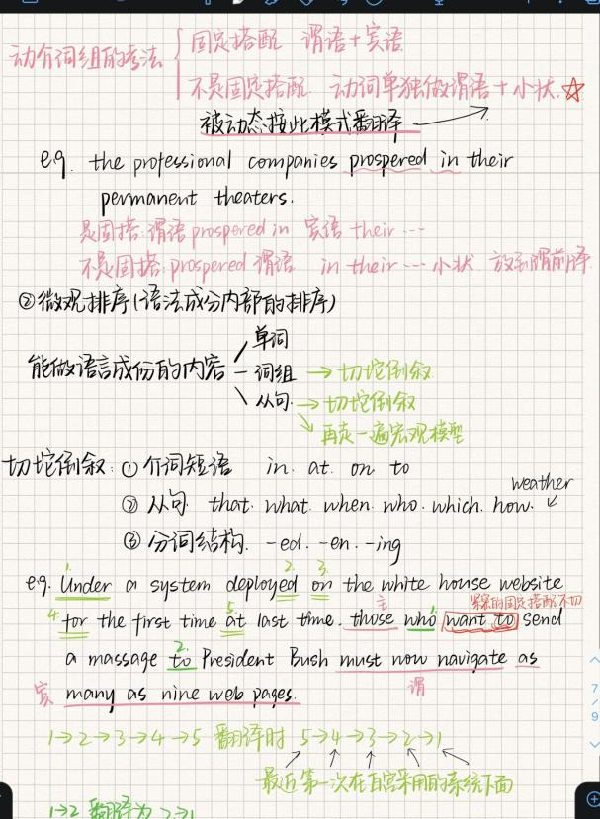 动介词组的考法 固定搭配 谓语+宾语
不是固定搭配. 动词单独做谓语+小状.☆
被动态按此模式翻译
e.g. the professional companies prospered in their
permanent theaters.
是固搭:谓语 prospered in 宾语 their ...
不是固搭:prospered 谓语 in their ... 小状. 放到谓前译.
②微观排序(语法成分内部的排序)
单词
能做语言成份的内容 词组 → 切坨倒叙
从句. → 切坨倒叙
再走一遍宏观模型
切坨倒叙:① 介词短语 in. at. on to
weather
② 从句. that. what. when. who. which. how.
③ 分词结构. -ed. -en. -ing
1. 2. 3.
e.g. Under a system deployed on the white house website
4. 5. 主 1 紧的固定搭配不切
for the first time at last time. those who want to send
2.
a massage to President Bush must now navigate as
宾 many as nine web pages. 谓
1→2→3→4→5 翻译时 5→4→3→2→1
最近第一次在白宫采用的系统下面
1→2 翻译为 2→1
7
/
9